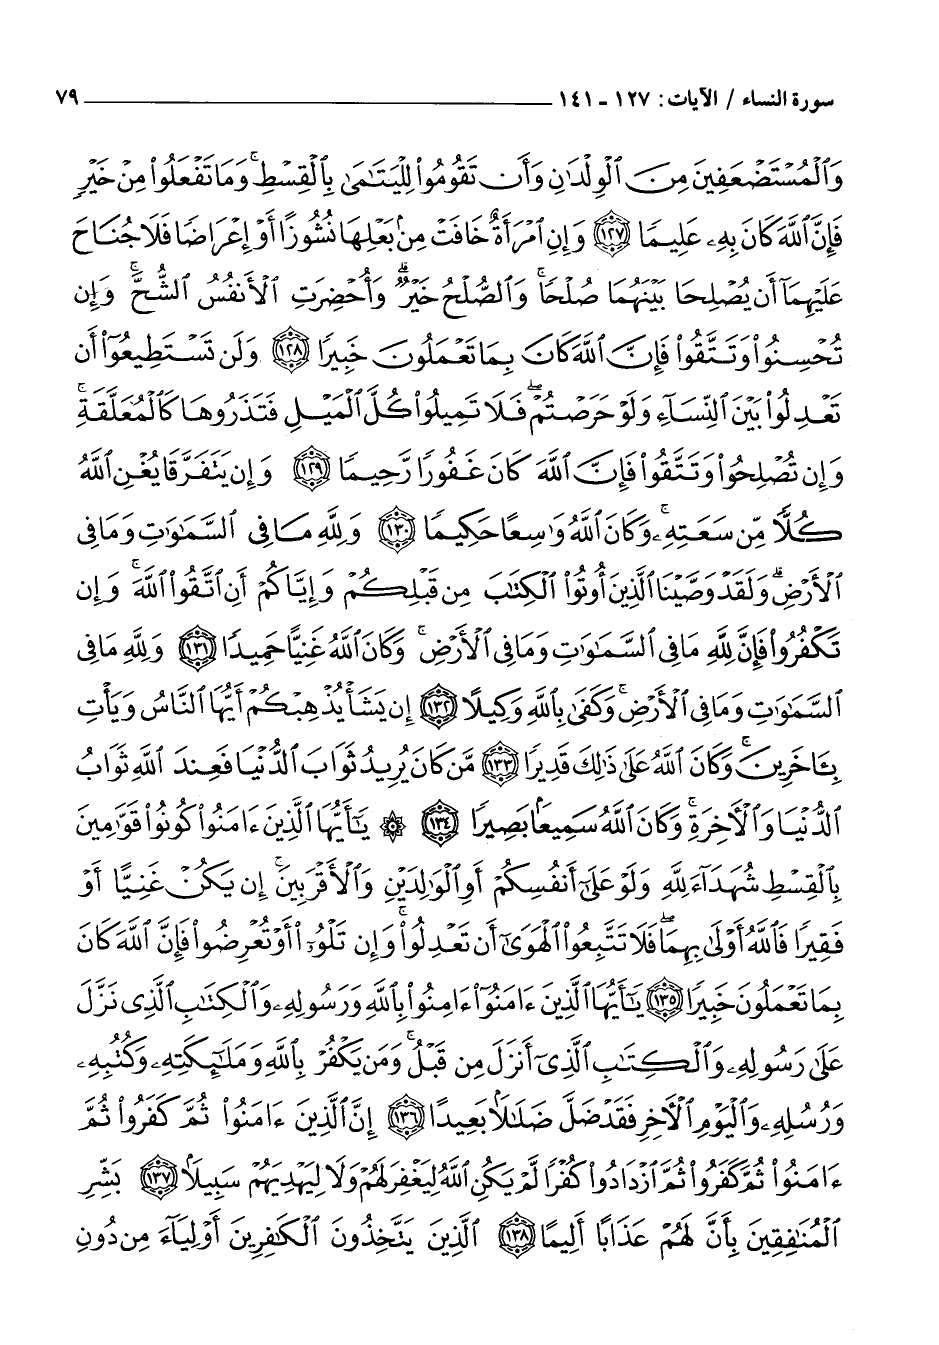 سورة النساء / الآيات: ١٢٧ - ١٤١ ٧٩
وَٱلْمُسْتَضْعَفِينَ مِنَ ٱلْوِلْدَٰنِ وَأَن تَقُومُوا۟ لِلْيَتَٰمَىٰ بِٱلْقِسْطِ ۚ وَمَا تَفْعَلُوا۟ مِنْ خَيْرٍ
فَإِنَّ ٱللَّهَ كَانَ بِهِۦ عَلِيمًا ١٢٧ وَإِنِ ٱمْرَأَةٌ خَافَتْ مِنۢ بَعْلِهَا نُشُوزًا أَوْ إِعْرَاضًا فَلَا جُنَاحَ
عَلَيْهِمَآ أَن يُصْلِحَا بَيْنَهُمَا صُلْحًا ۚ وَٱلصُّلْحُ خَيْرٌ ۗ وَأُحْضِرَتِ ٱلْأَنفُسُ ٱلشُّحَّ ۚ وَإِن
تُحْسِنُوا۟ وَتَتَّقُوا۟ فَإِنَّ ٱللَّهَ كَانَ بِمَا تَعْمَلُونَ خَبِيرًا ١٢٨ وَلَن تَسْتَطِيعُوٓا۟ أَن
تَعْدِلُوا۟ بَيْنَ ٱلنِّسَآءِ وَلَوْ حَرَصْتُمْ ۖ فَلَا تَمِيلُوا۟ كُلَّ ٱلْمَيْلِ فَتَذَرُوهَا كَٱلْمُعَلَّقَةِ ۚ
وَإِن تُصْلِحُوا۟ وَتَتَّقُوا۟ فَإِنَّ ٱللَّهَ كَانَ غَفُورًا رَّحِيمًا ١٢٩ وَإِن يَتَفَرَّقَا يُغْنِ ٱللَّهُ
كُلًّا مِّن سَعَتِهِۦ ۚ وَكَانَ ٱللَّهُ وَٰسِعًا حَكِيمًا ١٣٠ وَلِلَّهِ مَا فِى ٱلسَّمَٰوَٰتِ وَمَا فِى
ٱلْأَرْضِ ۗ وَلَقَدْ وَصَّيْنَا ٱلَّذِينَ أُوتُوا۟ ٱلْكِتَٰبَ مِن قَبْلِكُمْ وَإِيَّاكُمْ أَنِ ٱتَّقُوا۟ ٱللَّهَ ۚ وَإِن
تَكْفُرُوا۟ فَإِنَّ لِلَّهِ مَا فِى ٱلسَّمَٰوَٰتِ وَمَا فِى ٱلْأَرْضِ ۚ وَكَانَ ٱللَّهُ غَنِيًّا حَمِيدًا ١٣١ وَلِلَّهِ مَا فِى
ٱلسَّمَٰوَٰتِ وَمَا فِى ٱلْأَرْضِ ۚ وَكَفَىٰ بِٱللَّهِ وَكِيلًا ١٣٢ إِن يَشَأْ يُذْهِبْكُمْ أَيُّهَا ٱلنَّاسُ وَيَأْتِ
بِـَٔاخَرِينَ ۚ وَكَانَ ٱللَّهُ عَلَىٰ ذَٰلِكَ قَدِيرًا ١٣٣ مَّن كَانَ يُرِيدُ ثَوَابَ ٱلدُّنْيَا فَعِندَ ٱللَّهِ ثَوَابُ
ٱلدُّنْيَا وَٱلْـَٔاخِرَةِ ۚ وَكَانَ ٱللَّهُ سَمِيعًۢا بَصِيرًا ١٣٤ ۞ يَٰٓأَيُّهَا ٱلَّذِينَ ءَامَنُوا۟ كُونُوا۟ قَوَّٰمِينَ
بِٱلْقِسْطِ شُهَدَآءَ لِلَّهِ وَلَوْ عَلَىٰٓ أَنفُسِكُمْ أَوِ ٱلْوَٰلِدَيْنِ وَٱلْأَقْرَبِينَ ۚ إِن يَكُنْ غَنِيًّا أَوْ
فَقِيرًا فَٱللَّهُ أَوْلَىٰ بِهِمَا ۖ فَلَا تَتَّبِعُوا۟ ٱلْهَوَىٰٓ أَن تَعْدِلُوا۟ ۚ وَإِن تَلْوُۥٓا۟ أَوْ تُعْرِضُوا۟ فَإِنَّ ٱللَّهَ كَانَ
بِمَا تَعْمَلُونَ خَبِيرًا ١٣٥ يَٰٓأَيُّهَا ٱلَّذِينَ ءَامَنُوٓا۟ ءَامِنُوا۟ بِٱللَّهِ وَرَسُولِهِۦ وَٱلْكِتَٰبِ ٱلَّذِى نَزَّلَ
عَلَىٰ رَسُولِهِۦ وَٱلْكِتَٰبِ ٱلَّذِىٓ أَنزَلَ مِن قَبْلُ ۚ وَمَن يَكْفُرْ بِٱللَّهِ وَمَلَٰٓئِكَتِهِۦ وَكُتُبِهِۦ
وَرُسُلِهِۦ وَٱلْيَوْمِ ٱلْـَٔاخِرِ فَقَدْ ضَلَّ ضَلَٰلًۢا بَعِيدًا ١٣٦ إِنَّ ٱلَّذِينَ ءَامَنُوا۟ ثُمَّ كَفَرُوا۟ ثُمَّ
ءَامَنُوا۟ ثُمَّ كَفَرُوا۟ ثُمَّ ٱزْدَادُوا۟ كُفْرًا لَّمْ يَكُنِ ٱللَّهُ لِيَغْفِرَ لَهُمْ وَلَا لِيَهْدِيَهُمْ سَبِيلًۢا ١٣٧ بَشِّرِ
ٱلْمُنَٰفِقِينَ بِأَنَّ لَهُمْ عَذَابًا أَلِيمًا ١٣٨ ٱلَّذِينَ يَتَّخِذُونَ ٱلْكَٰفِرِينَ أَوْلِيَآءَ مِن دُونِ